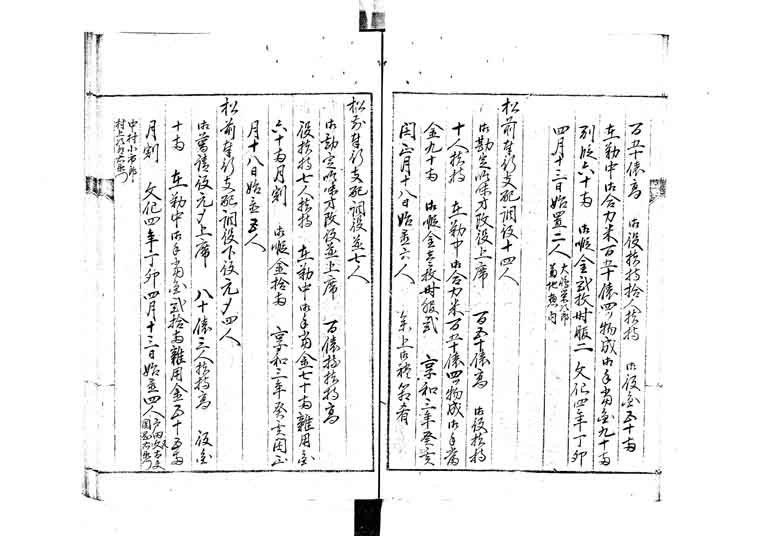 百五十俵高 御役扶持拾人扶持 御役金五十両
在勤中御合力米百五十俵四ツ物成御手当金九十両
別段六十両 御暇金弐枚時服二 文化四年丁卯
四月十三日始置二人 大嶋栄次郎
菊地惣内
松前奉行支配調役十四人
御勘定吟味方改役上席 百五十俵高 御役扶持
十人扶持 在勤中御合力米百五十俵四ツ物成御手当
金九十両 御暇金壱枚時服弐 享和三年癸亥
閏正月十八日始置六人
松前奉行支配調役並七人
御勘定吟味方改役並上席 百俵
役扶持七人扶持 在勤中御手当金七十両雑用金
六十両月割 御暇金拾両 享和三年癸亥閏正
月十八日始置五人
松前奉行支配調役下役元〆四人
御普請役元〆上席 八十俵三人扶持高 役金
十両 在勤中御手当金弐拾両雑用金五十五両
月割 文化四年丁卯四月十三日始置四人
中村小市郎
村上次郎右衛門